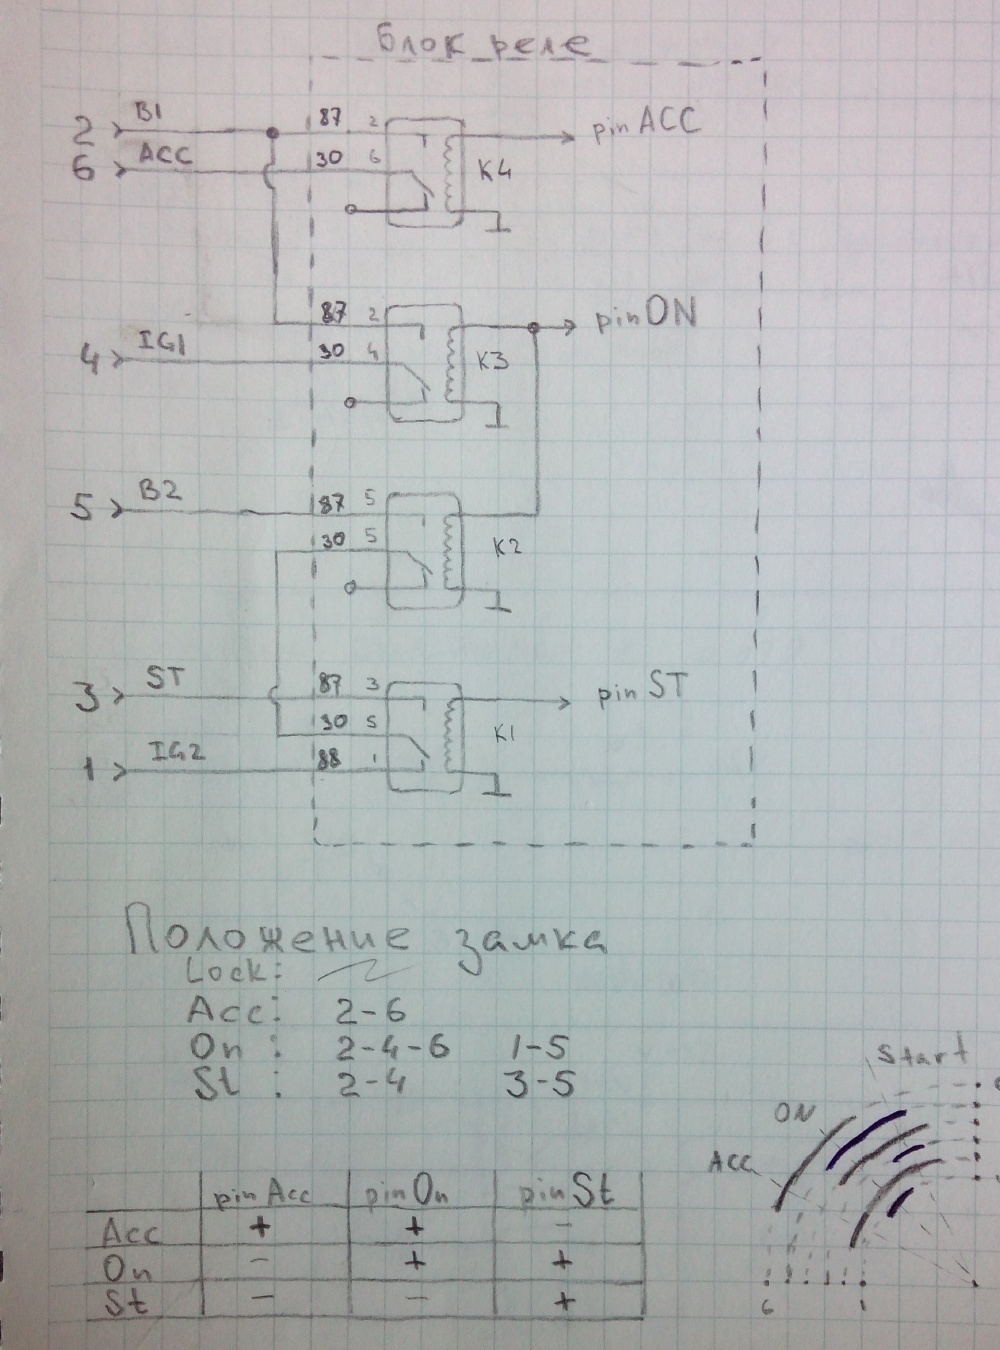 блок реле
2 B1 87 2 pin ACC
6 ACC 30 6 K4
87 2 pin ON
4 IG1 30 4 K3
5 B2 87 5
30 5 K2
3 ST 87 3 pin ST
30 5 K1
1 IG2 88 1
Положение замка
Lock:
Acc: 2-6
On : 2-4-6 1-5
St : 2-4 3-5
Start
ON
Acc
pin Acc pin On pin St
Acc + + -
On - + +
St - - +
6 1